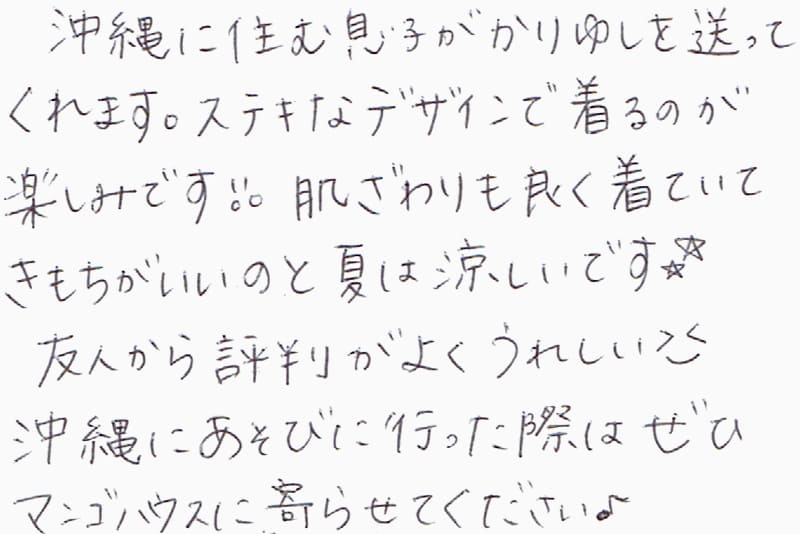 沖縄に住む息子がかりゆしを送って
くれます。ステキなデザインで着るのが
楽しみです!!。肌ざわりも良く着ていて
きもちがいいのと夏は涼しいです☆☆
友人から評判がよくうれしい
沖縄にあそびに行った際はぜひ
マンゴハウスに寄らせてください♪